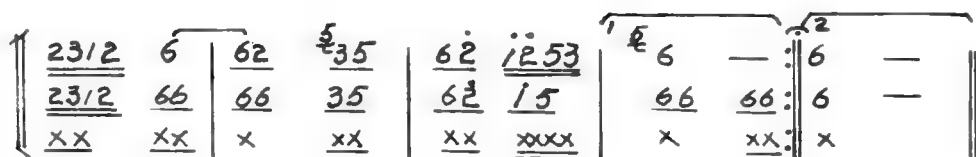 2312 6 | 62 5 35 | 62̇ i̇2̇53 | 1 6 6 — :‖ 2 6 —
2312 66 | 66 35 | 62̇ i5 | 66 66 :‖ 6 —
xx xx | x xx | xx xxxx | x xx :‖ x